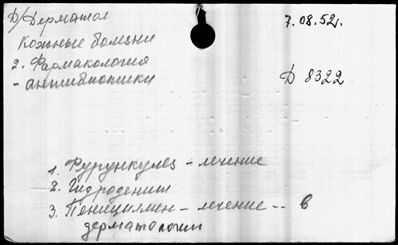 Д/Дерматол
7.08.52.
Кожные болезни
2. Фармакология
Д 8322
- антибиотики
1. Фурункулез - лечение
2. Гидроденит
3. Пенициллин - лечение -- в
дерматологии